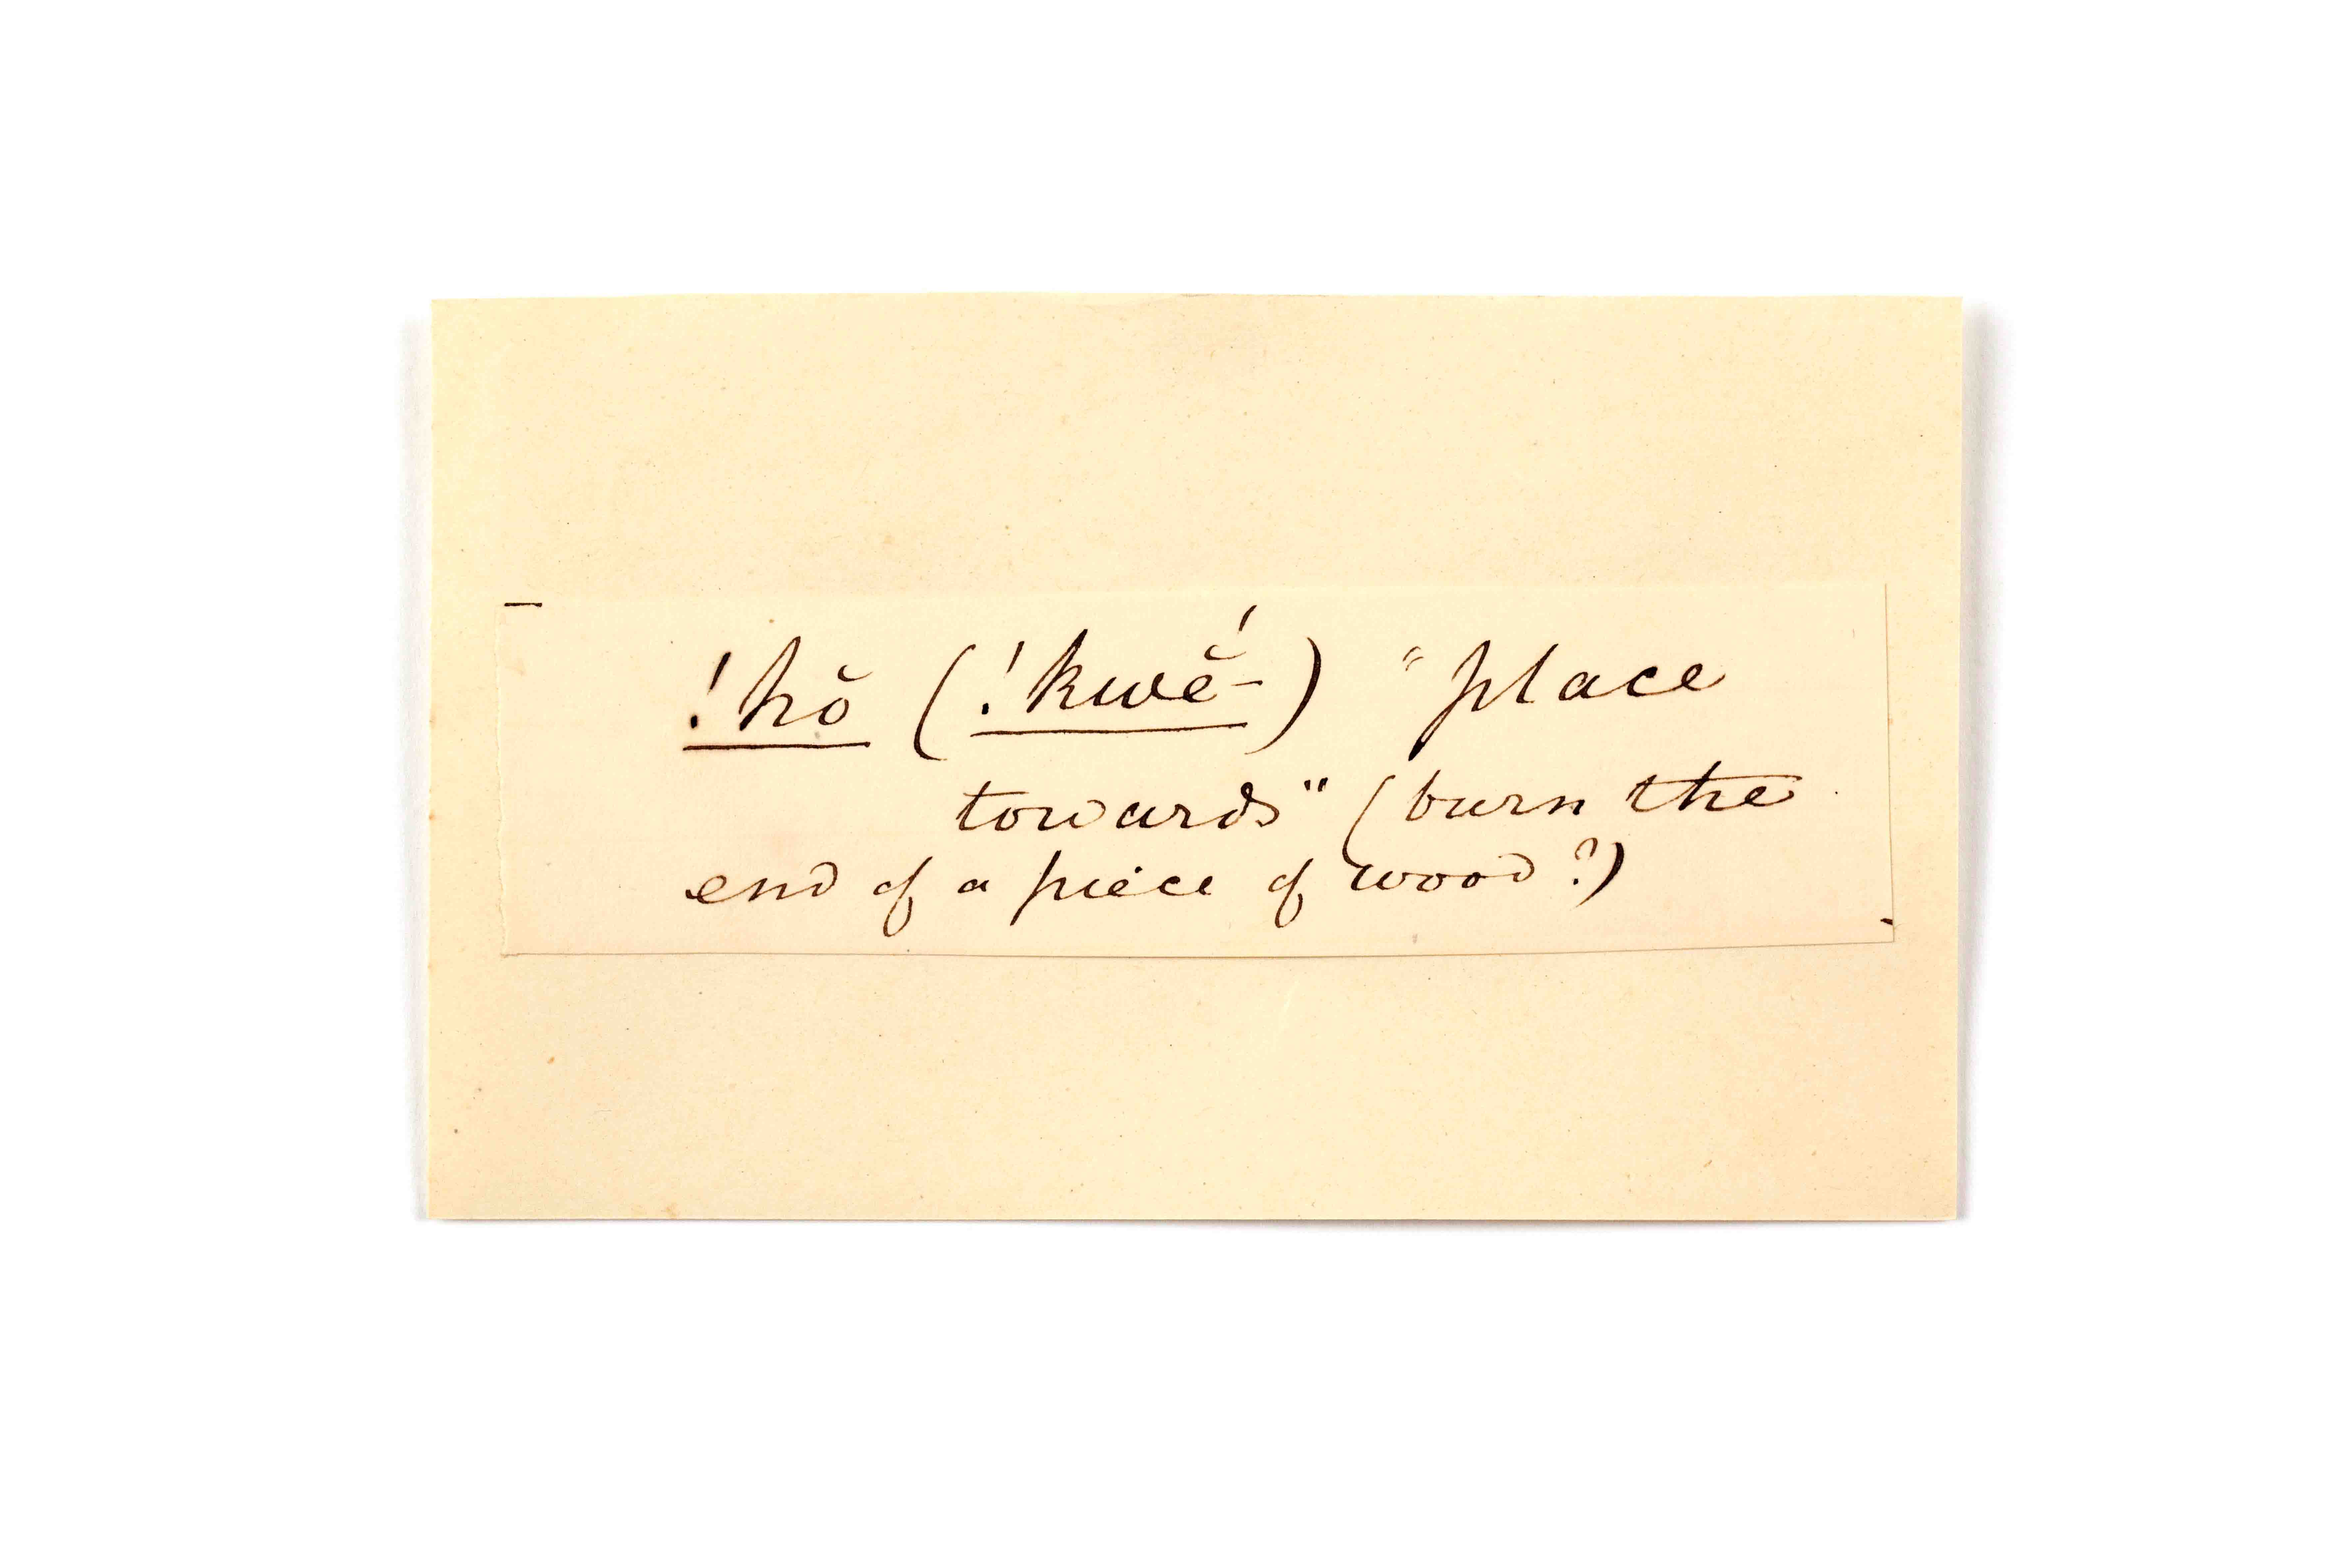 !hŏ (!kwĕ́-) "place
towards" (burn the
end of a piece of wood?)